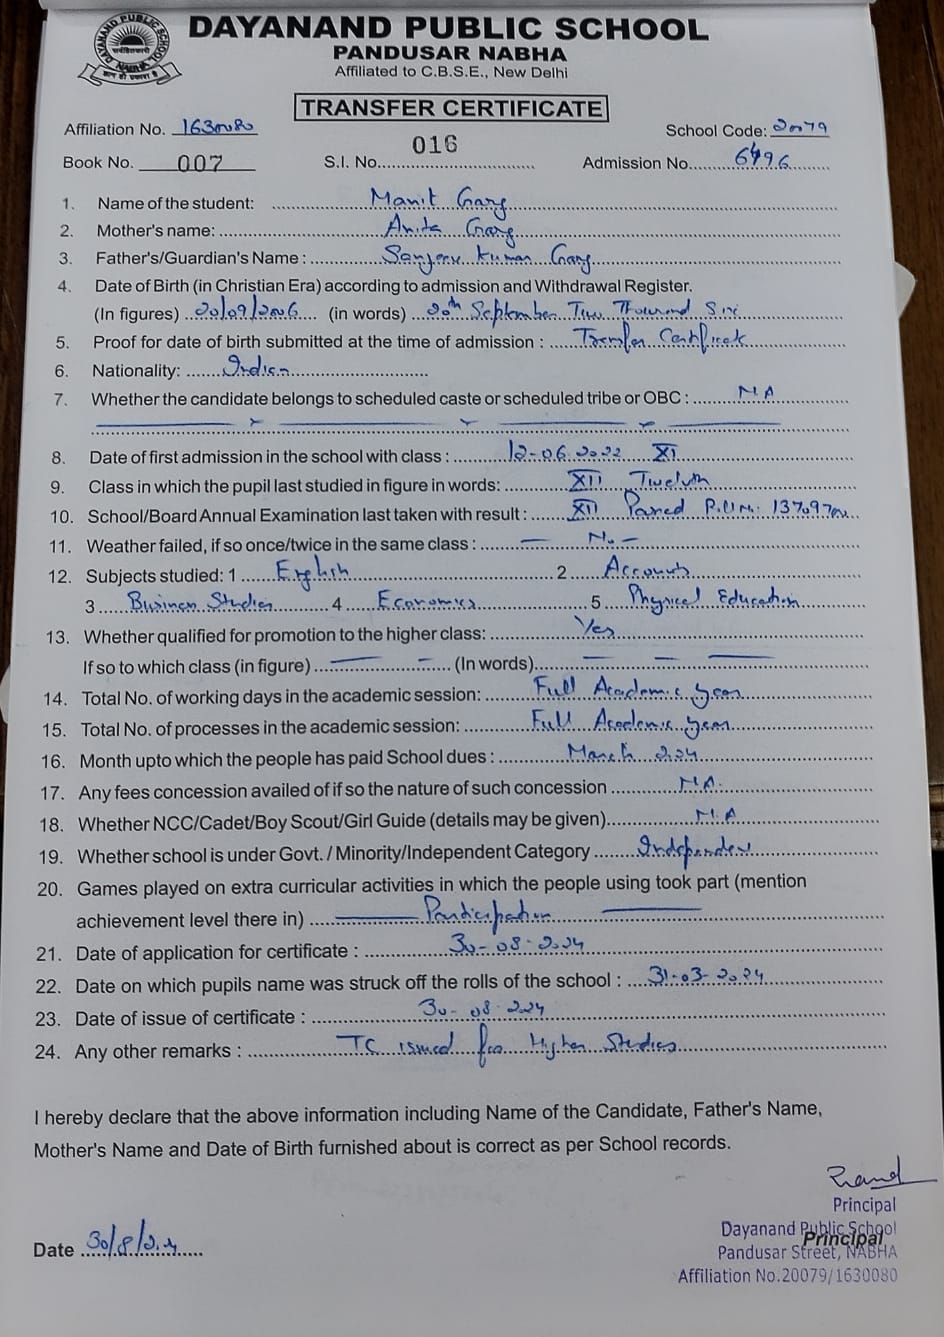 DAYANAND PUBLIC SCHOOL
PANDUSAR NABHA
Affiliated to C.B.S.E., New Delhi
DAYANAND PUBLIC SCHOOL
NABHA
TRANSFER CERTIFICATE
Affiliation No. 1630080 School Code: 20079
Book No. 007 S.I. No. 016 Admission No. 6496
1. Name of the student: Manit Garg
2. Mother's name: Anita Garg
3. Father's/Guardian's Name : Sanjeev Kumar Garg
4. Date of Birth (in Christian Era) according to admission and Withdrawal Register.
(In figures) 20/09/2006 (in words) 20th September Two Thousand Six
5. Proof for date of birth submitted at the time of admission : Transfer Certificate
6. Nationality: Indian
7. Whether the candidate belongs to scheduled caste or scheduled tribe or OBC : N.A
8. Date of first admission in the school with class : 12-06-2022 XI
9. Class in which the pupil last studied in figure in words: XII Twelvth
10. School/Board Annual Examination last taken with result : XII Passed
11. Weather failed, if so once/twice in the same class : — No —
12. Subjects studied: 1 English 2 Accounts
3 Business Studies 4 Economics 5 Physical Education
13. Whether qualified for promotion to the higher class: Yes
If so to which class (in figure) — — (In words) — — —
14. Total No. of working days in the academic session: Full Academic year
15. Total No. of processes in the academic session: Full Academic year
16. Month upto which the people has paid School dues : March 2024
17. Any fees concession availed of if so the nature of such concession N.A.
18. Whether NCC/Cadet/Boy Scout/Girl Guide (details may be given) N.A
19. Whether school is under Govt. / Minority/Independent Category Independent
20. Games played on extra curricular activities in which the people using took part (mention
achievement level there in) — Participation —
21. Date of application for certificate : 30-08-2024
22. Date on which pupils name was struck off the rolls of the school : 31-03-2024
23. Date of issue of certificate : 30-08-2024
24. Any other remarks : TC issued for Higher Studies
I hereby declare that the above information including Name of the Candidate, Father's Name,
Mother's Name and Date of Birth furnished about is correct as per School records.
Principal
Dayanand Public School
Principal
Date 30/8/24 Pandusar Street, NABHA
Affiliation No.20079/1630080